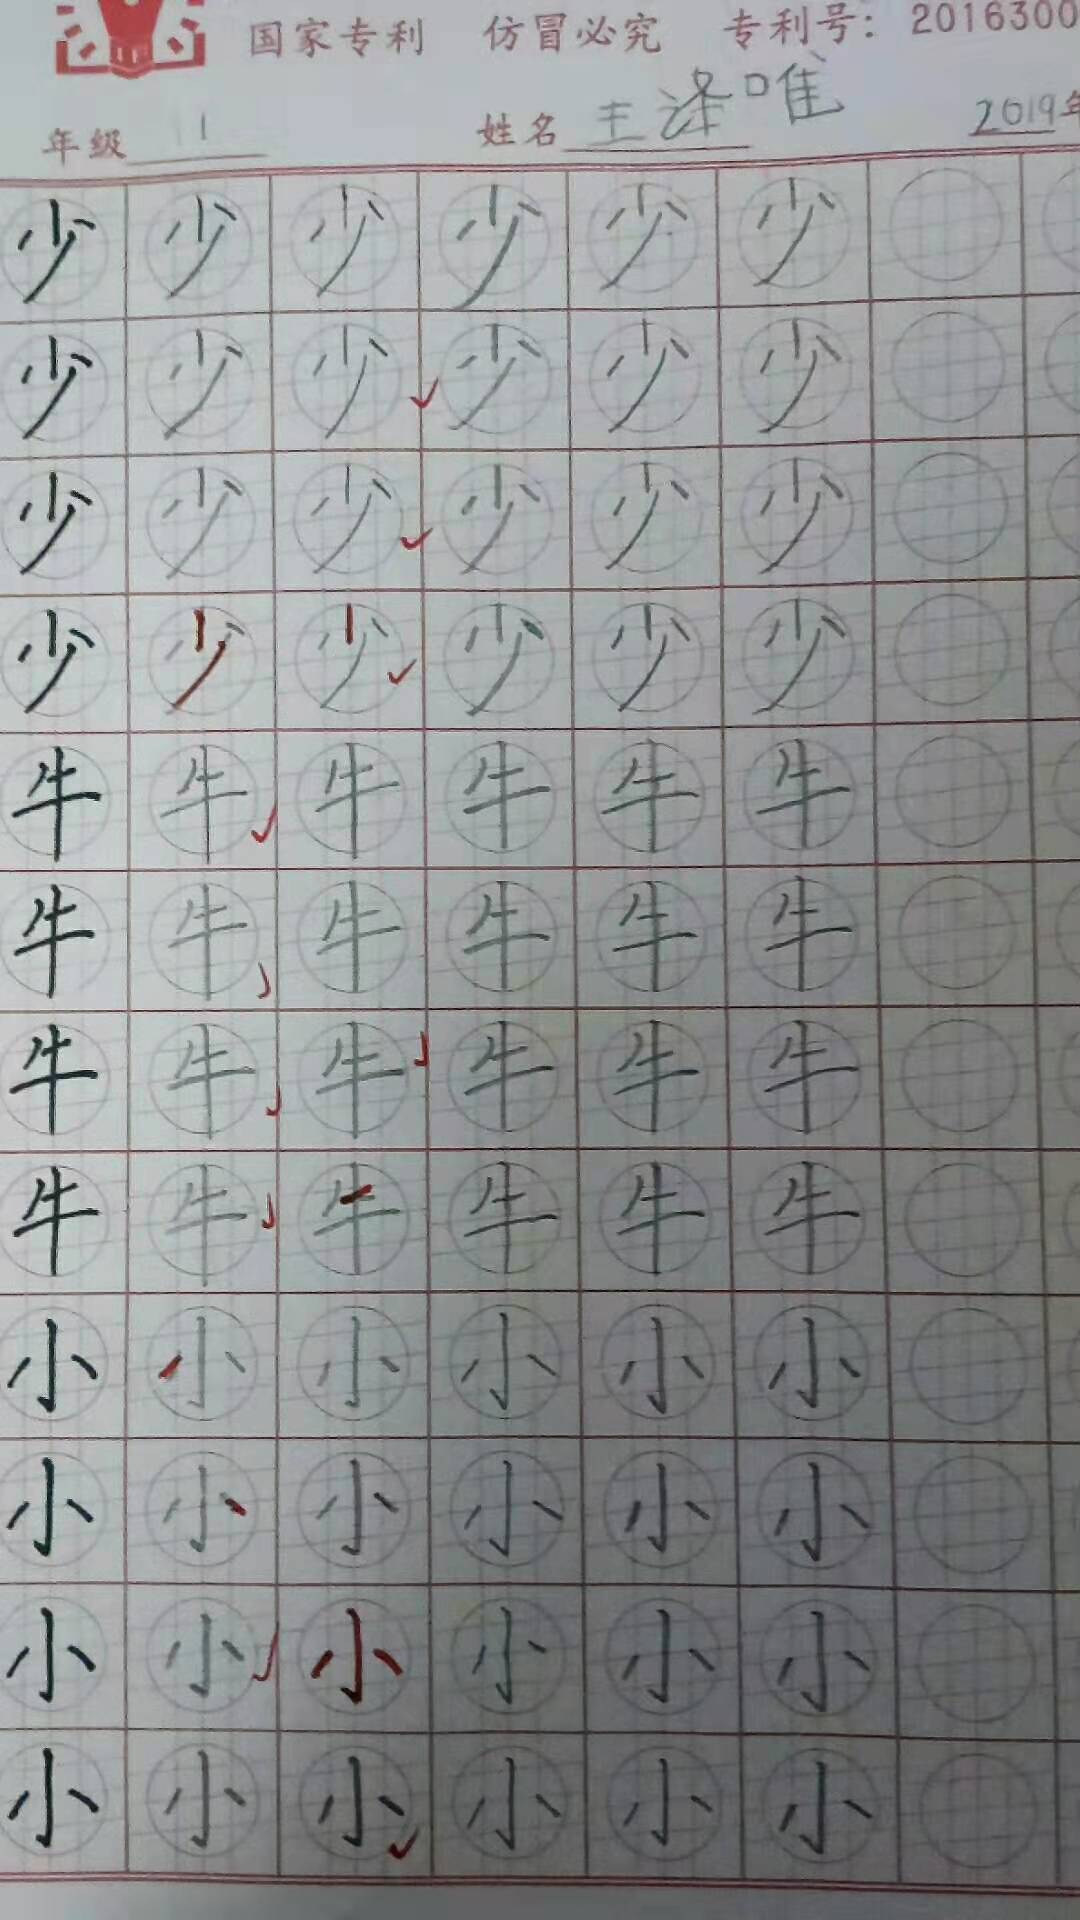 国家专利 仿冒必究 专利号: 2016300
年级 1 姓名 王泽唯 2019年
少 少 少 少 少 少
少 少 少 少 少 少
少 少 少 少 少 少
少 少 少 少 少 少
牛 牛 牛 牛 牛 牛
牛 牛 牛 牛 牛 牛
牛 牛 牛 牛 牛 牛
牛 牛 牛 牛 牛 牛
小 小 小 小 小 小
小 小 小 小 小 小
小 小 小 小 小 小
小 小 小 小 小 小